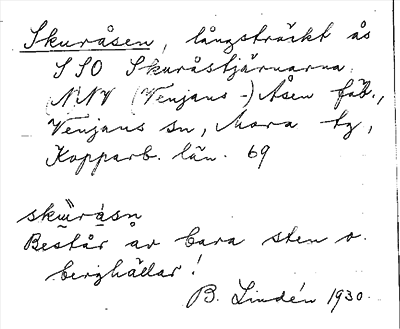 Skuråsen, långsträckt ås
SSO Skuråstjärnarna,
(NNV (Venjans-) Åsen fäb.,
Venjans sn, Mora tg,
Kopparb. län. 69
skuråsn
Består av bara sten o.
berghällar!
B. Lindén 1930.